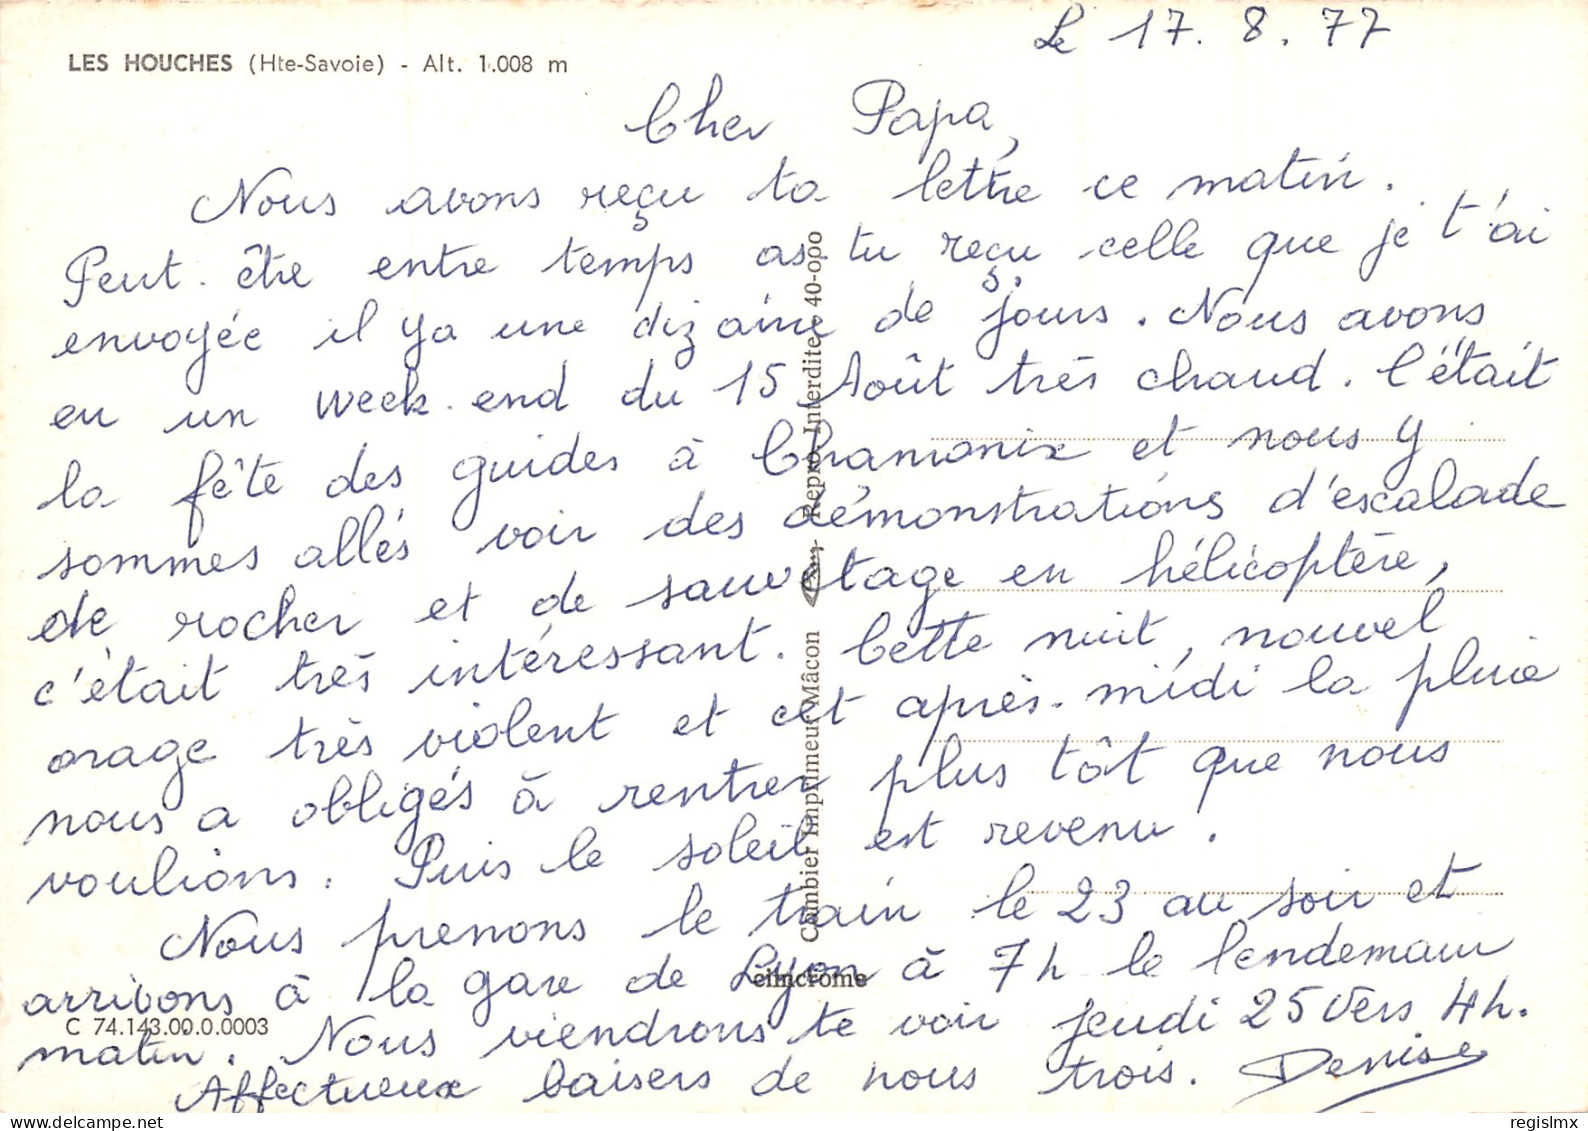 Le 17.8.77
LES HOUCHES (Hte-Savoie) - Alt. 1.008 m
Cher Papa,
Nous avons reçu ta lettre ce matin.
Peut-être entre temps as-tu reçu celle que je t'ai
envoyée il ya une dizaine de jours. Nous avons
eu un week-end du 15 Août très chaud. C'était
la fête des guides à Chamonix et nous y
sommes allés voir des démonstrations d'escalade
de rocher et de sauvetage en hélicoptère,
c'était très intéressant. Cette nuit, nouvel
orage très violent et cet après-midi la pluie
nous a obligés à rentrer plus tôt que nous
voulions. Puis le soleil est revenu.
Nous prenons le train le 23 au soir et
arrivons à la gare de Lyon à 7h le lendemain
matin. Nous viendrons te voir jeudi 25 vers 4h.
Affectueux baisers de nous trois. Denise
Combier Imprimeur Mâcon
Repro. Interdite - 40-000
cimcrome
C 74.143.00.0.0003
regislmx